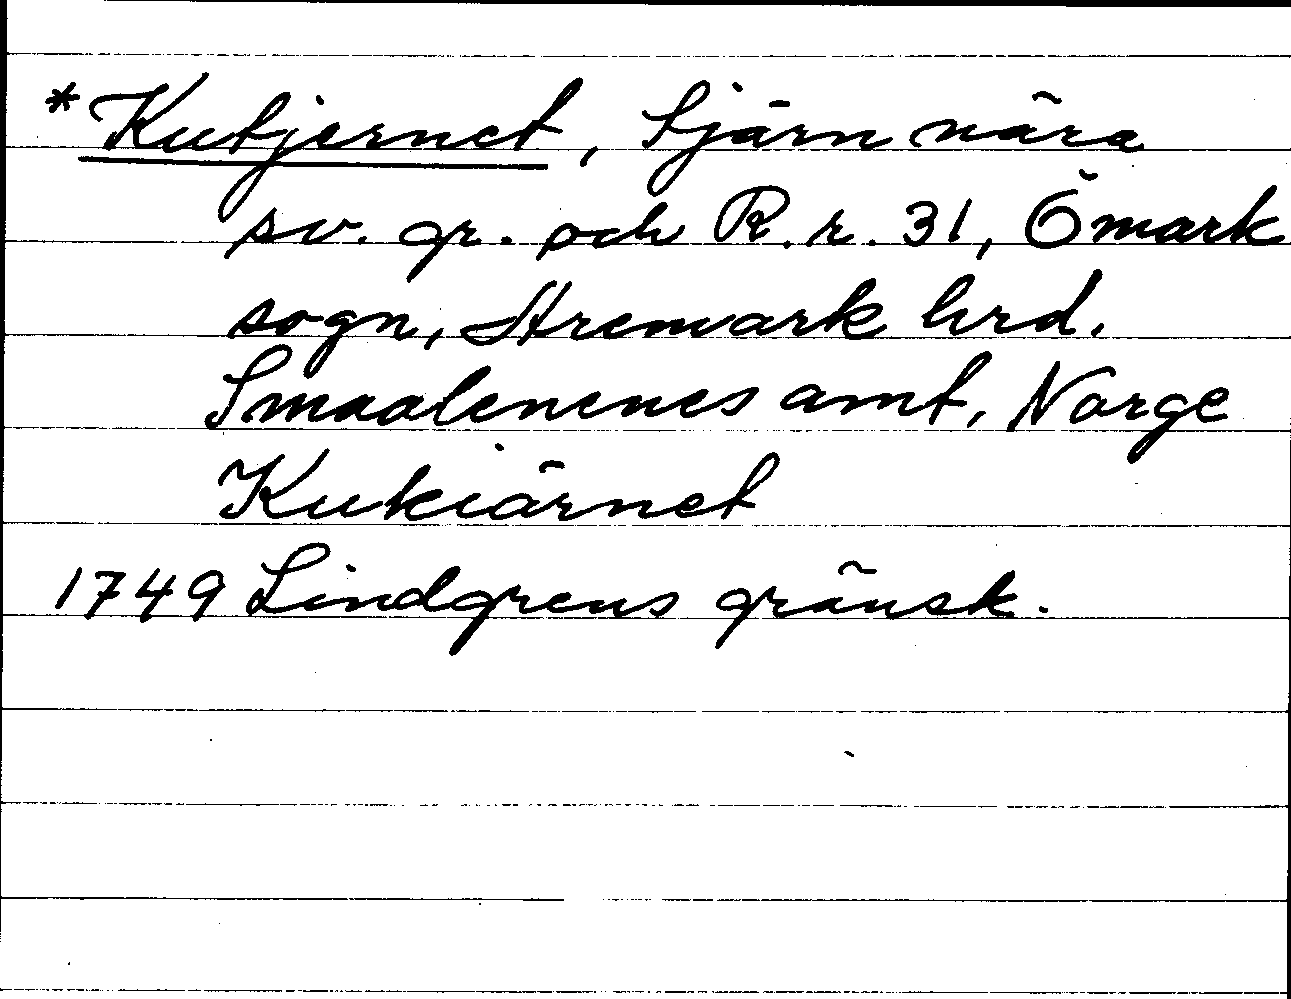 * Kutjernet, tjärn nära
sv. gr. och R. r. 31, Ömark
sogn, Aremark hrd.
Smaalenenes amt, Norge
Kukiärnet
1749 Lindgrens gränsk.